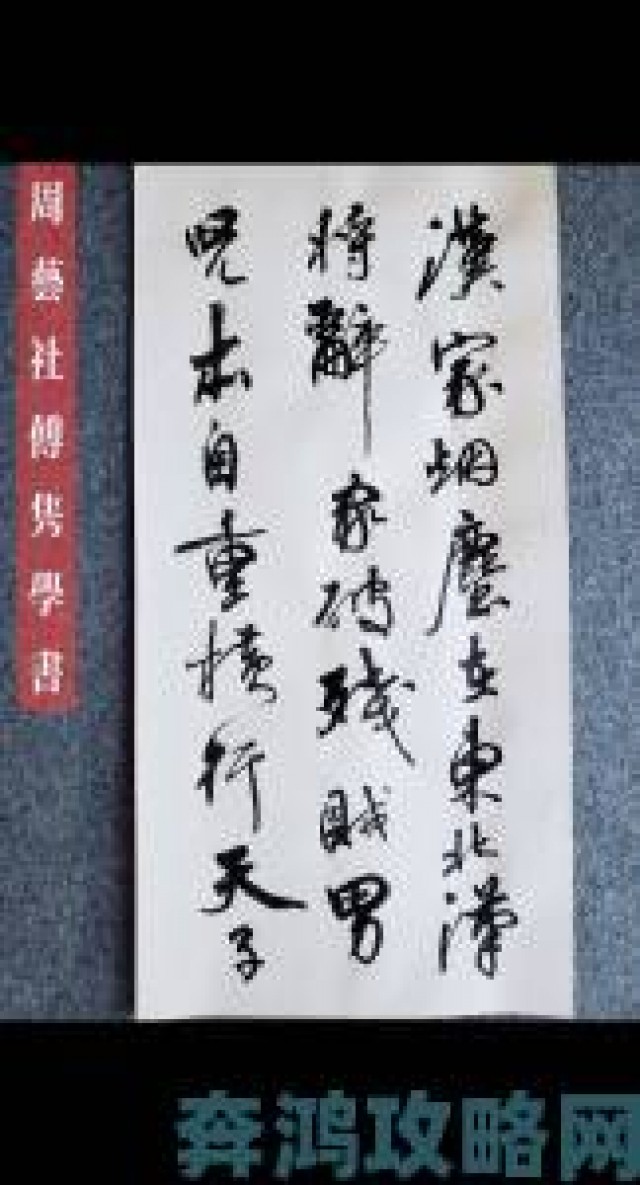 漢家烟塵在東北漢
将辭家破殘賊男
児本自重横行天子
周藝社傅隽學書
奔鸿攻略网